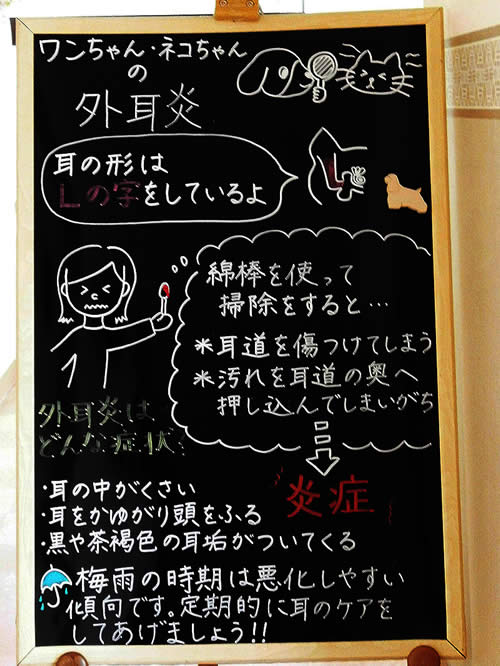 ワンちゃん・ネコちゃん
の
外耳炎
耳の形は
Lの字をしているよ
綿棒を使って
掃除をすると…
*耳道を傷つけてしまう
*汚れを耳道の奥へ
押し込んでしまいがち
炎症
外耳炎は
どんな症状?
・耳の中がくさい
・耳をかゆがり頭をふる
・黒や茶褐色の耳垢がついてくる
梅雨の時期は悪化しやすい
傾向です。定期的に耳のケアを
してあげましょう!!